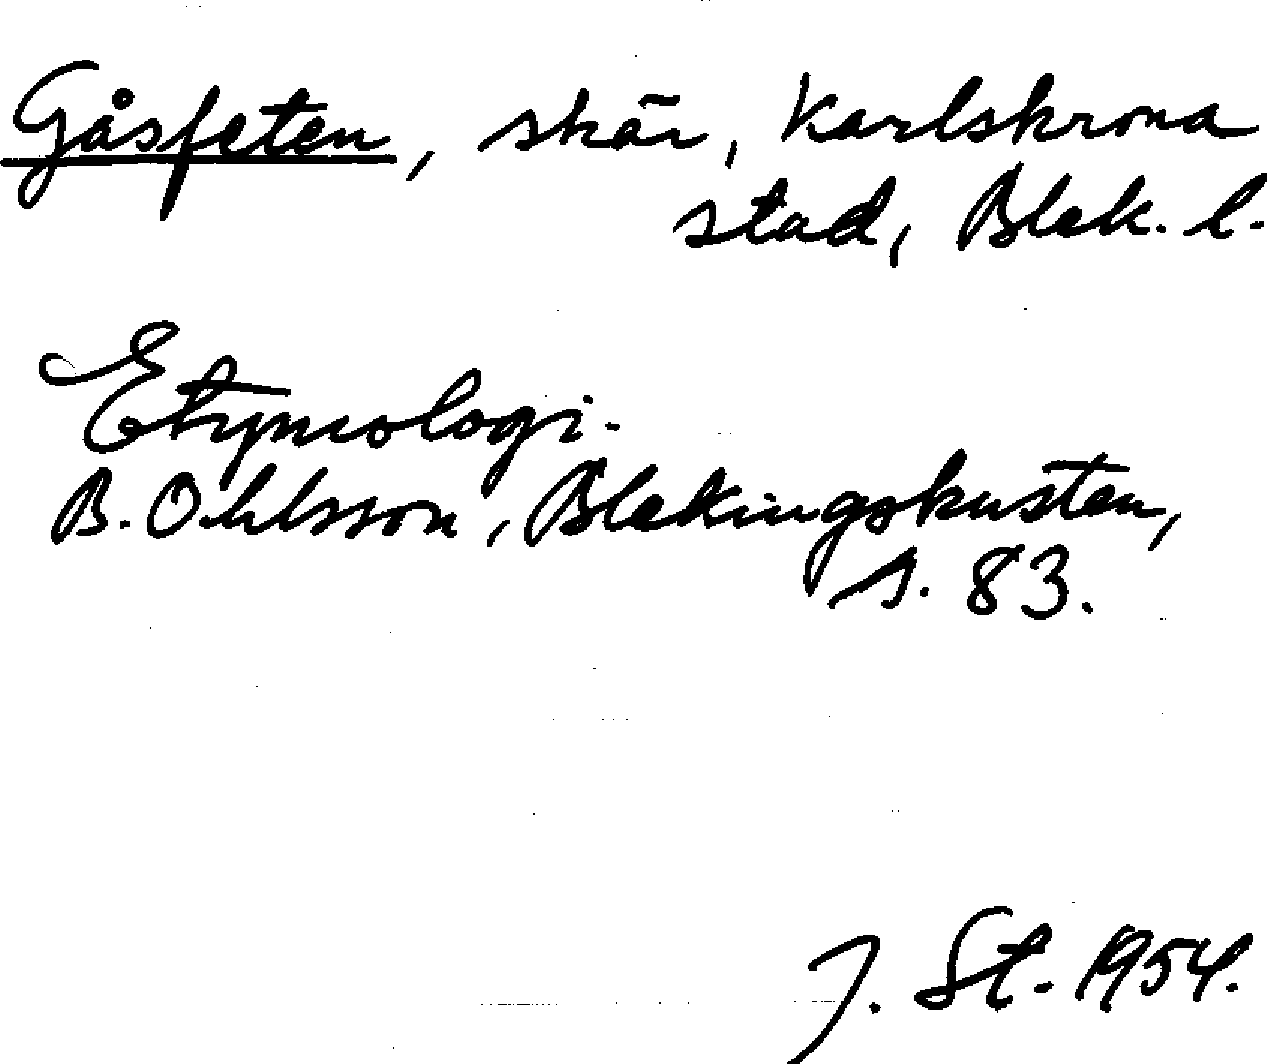 Gåsfeten, skär, Karlskrona
stad, Blek. l.
Etymologi.
B. Ohlsson, Blekingskusten,
s. 83.
J. St. 1954.